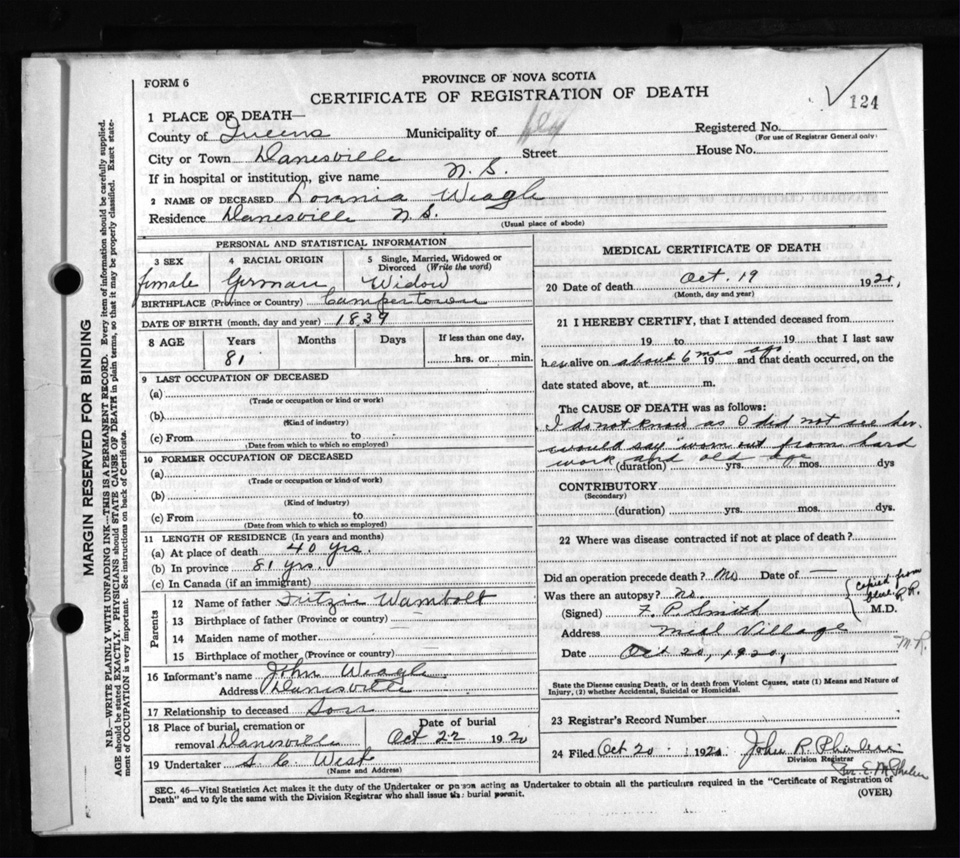 FORM 6
PROVINCE OF NOVA SCOTIA
CERTIFICATE OF REGISTRATION OF DEATH
124
1 PLACE OF DEATH—
County of Queens Municipality of Registered No.
(For use of Registrar General only)
City or Town Danesville Street House No.
If in hospital or institution, give name N. S.
2 NAME OF DECEASED Lovinia Weagle
Residence Danesville N. S.
(Usual place of abode)
MARGIN RESERVED FOR BINDING
N.B.—WRITE PLAINLY WITH UNFADING INK—THIS IS A PERMANENT RECORD. Every item of information should be carefully supplied.
AGE should be stated EXACTLY. PHYSICIANS should STATE CAUSE OF DEATH in plain terms, so that it may be properly classified. Exact state-
ment of OCCUPATION is very important. See instructions on back of Certificate.
PERSONAL AND STATISTICAL INFORMATION
3 SEX 4 RACIAL ORIGIN 5 Single, Married, Widowed or
Divorced (Write the word)
female German Widow
BIRTHPLACE (Province or Country) Campertown
DATE OF BIRTH (month, day and year) 1839
8 AGE Years Months Days If less than one day,
81 hrs. or min.
9 LAST OCCUPATION OF DECEASED
(a)
(Trade or occupation or kind or work)
(b)
(Kind of industry)
(c) From to
(Date from which to which so employed)
10 FORMER OCCUPATION OF DECEASED
(a)
(Trade or occupation or kind of work)
(b)
(Kind of industry)
(c) From to
(Date from which to which so employed)
11 LENGTH OF RESIDENCE (In years and months)
(a) At place of death 40 yrs.
(b) In province 81 yrs.
(c) In Canada (if an immigrant)
Parents
12 Name of father Fritzie Wambolt
13 Birthplace of father (Province or country) —
14 Maiden name of mother
15 Birthplace of mother (Province or country)
16 Informant's name John Weagle
Address Danesville
17 Relationship to deceased Son
18 Place of burial, cremation or Date of burial
removal Danesville Oct 22 1920
19 Undertaker S. C. West
(Name and Address)
MEDICAL CERTIFICATE OF DEATH
20 Date of death Oct. 19 1920,
(Month, day and year)
21 I HEREBY CERTIFY, that I attended deceased from
19 to 19 that I last saw
her alive on about 6 mos ago 19 and that death occurred, on the
date stated above, at m.
The CAUSE OF DEATH was as follows:
I do not know as I did not see her.
would say "worn out from hard
work and old age
(duration) yrs. mos. dys
CONTRIBUTORY
(Secondary)
(duration) yrs. mos. dys.
22 Where was disease contracted if not at place of death?
Did an operation precede death? No Date of —
Was there an autopsy? No.
copied from
(Signed) F. P. Smith M.D.
Address Mill Village
Date Oct 20, 1920,
M.R.
State the Disease causing Death, or in death from Violent Causes, state (1) Means and Nature of
Injury, (2) whether Accidental, Suicidal or Homicidal.
23 Registrar's Record Number
24 Filed Oct 20 1920 John R.
Division Registrar
SEC. 46—Vital Statistics Act makes it the duty of the Undertaker or person acting as Undertaker to obtain all the particulars required in the "Certificate of Registration of
Death" and to fyle the same with the Division Registrar who shall issue the burial permit. (OVER)